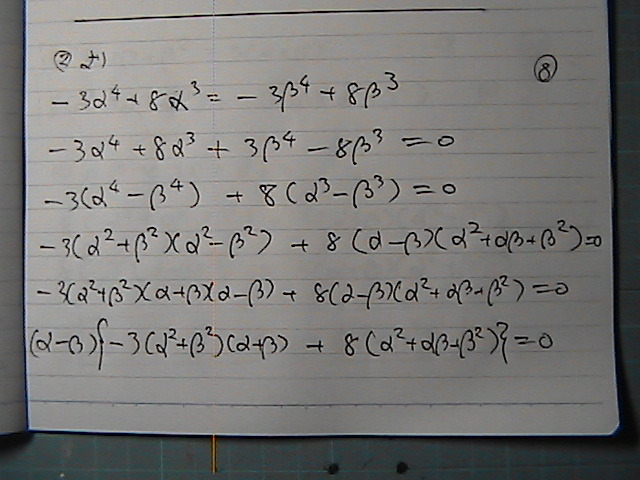 ②より
⑧
-3α⁴+8α³=-3β⁴+8β³
-3α⁴+8α³+3β⁴-8β³=0
-3(α⁴-β⁴)+8(α³-β³)=0
-3(α²+β²)(α²-β²)+8(α-β)(α²+αβ+β²)=0
-3(α²+β²)(α+β)(α-β)+8(α-β)(α²+αβ+β²)=0
(α-β){-3(α²+β²)(α+β)+8(α²+αβ+β²)}=0